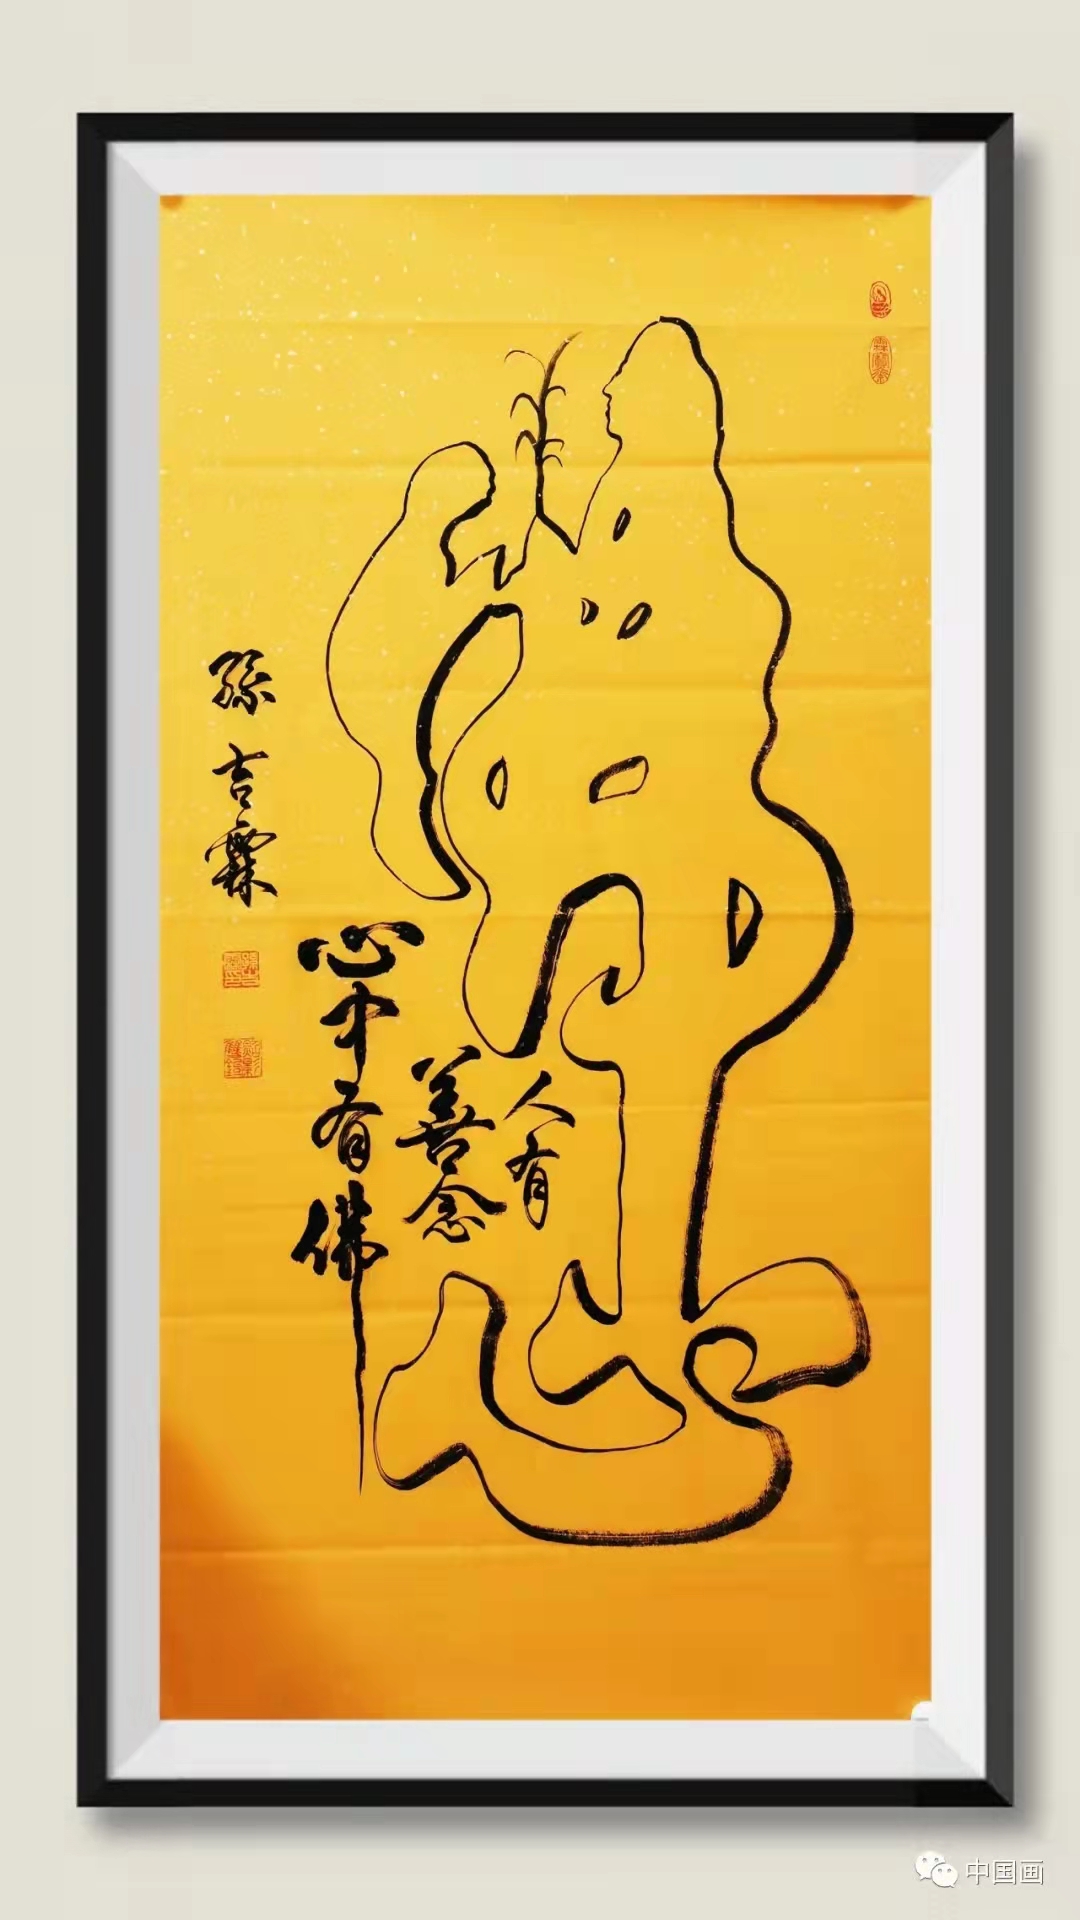 人有
善念
心中有佛
孫吉霖
中国画